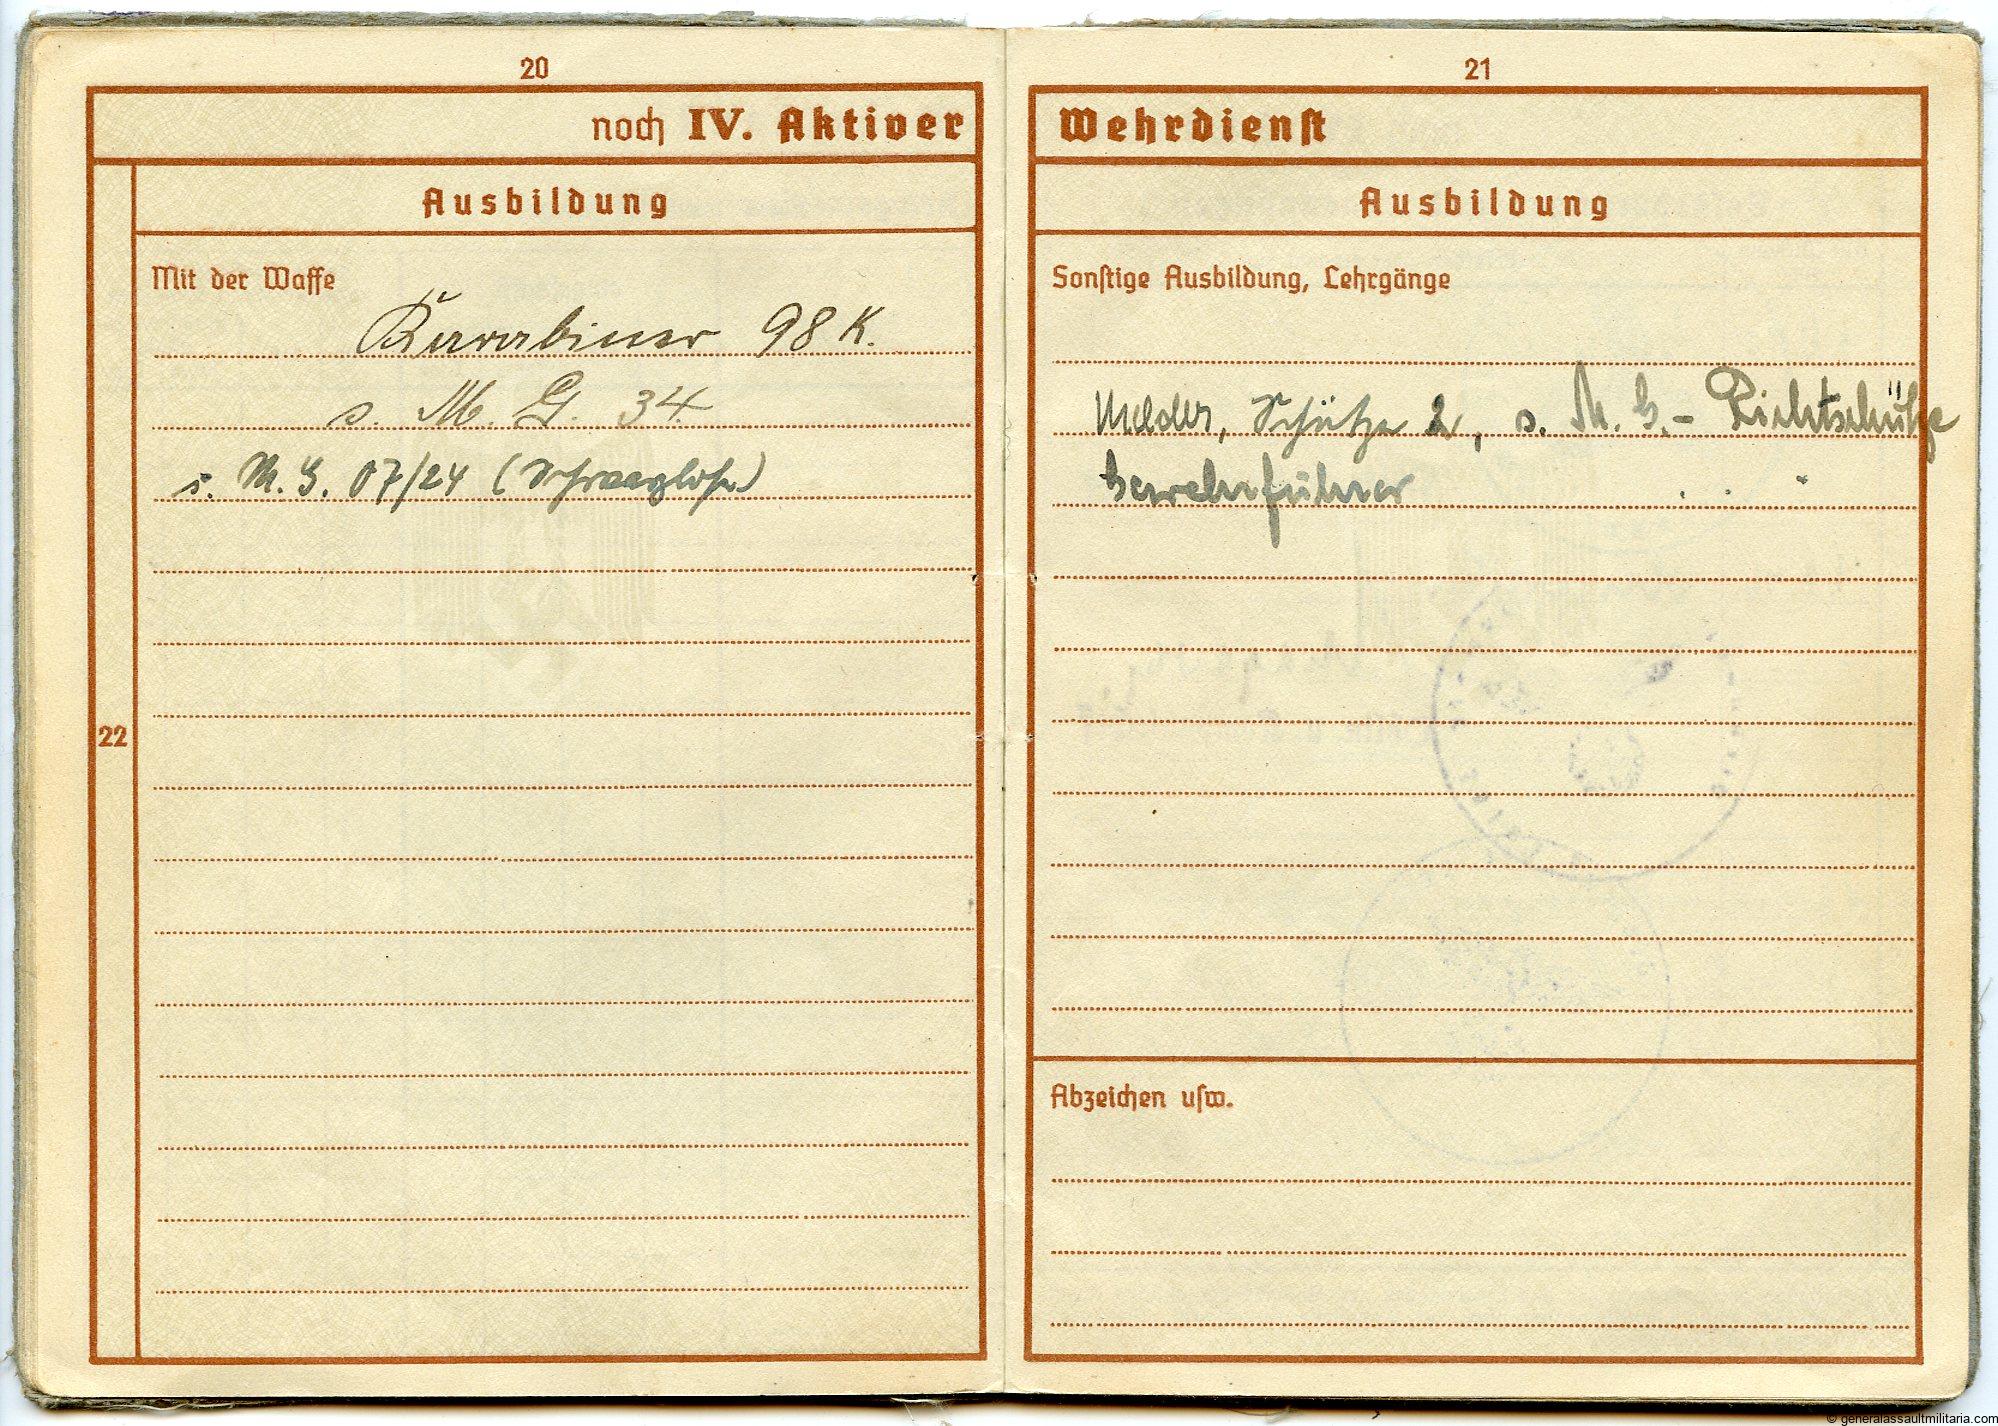 20
noch IV. Aktiver
Ausbildung
Mit der Waffe
Karabiner 98 K.
s. M. G. 34.
s. M. G. 07/24 (Schwarzlose)
22
21
Wehrdienst
Ausbildung
Sonstige Ausbildung, Lehrgänge
Melder, Schütze 2, s. M. G. - Richtschütze
Gewehrführer
Abzeichen usw.
© generalassaultmilitaria.com